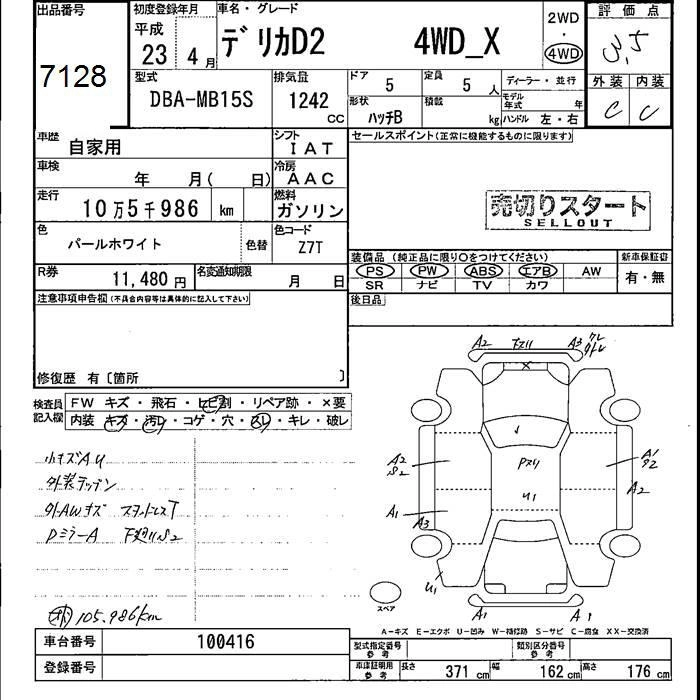 出品番号 初度登録年月 車名・グレード 評価点
7128 平成 23 4月 デリカD2 4WD_X 2WD・4WD 3.5
型式 排気量 ドア 5 定員 5人 ディーラー・並行 外装 内装
DBA-MB15S 1242 CC 形状 ハッチB 積載 kg モデル年式 年 ハンドル 左・右 C C
車歴 自家用 シフト IAT セールスポイント(正常に機能するものに限ります)
車検 年 月( 日) 冷房 AAC
走行 10万5千986 km 燃料 ガソリン
売切りスタート
SELLOUT
色 パールホワイト 色替 色コード Z7T
装備品(純正品に限り○をつけてください) 新車保証書
PS PW ABS エアB AW 有・無
SR ナビ TV カワ
R券 11,480円 名変通知期限 月 日
後日品
注意事項申告欄(不具合内容等は具体的に記入して下さい)
修復歴 有〔箇所 〕
検査員記入欄 FW キズ・飛石・ヒビ割・リペア跡・×要
内装 キズ・汚レ・コゲ・穴・スレ・キレ・破レ
A2 A3
A2 S2
A1
A3
U1
U1
A1
A2
A1 A1
小キズAU
Dミラ-A
105.986km
スペア
A-キズ E-エクボ U-凹み W-補修跡 S-サビ C-腐食 XX-交換済
車台番号 100416
登録番号
型式指定番号 参考 類別区分番号 参考
車庫証明用 参考 長さ 371 cm 幅 162 cm 高さ 176 cm